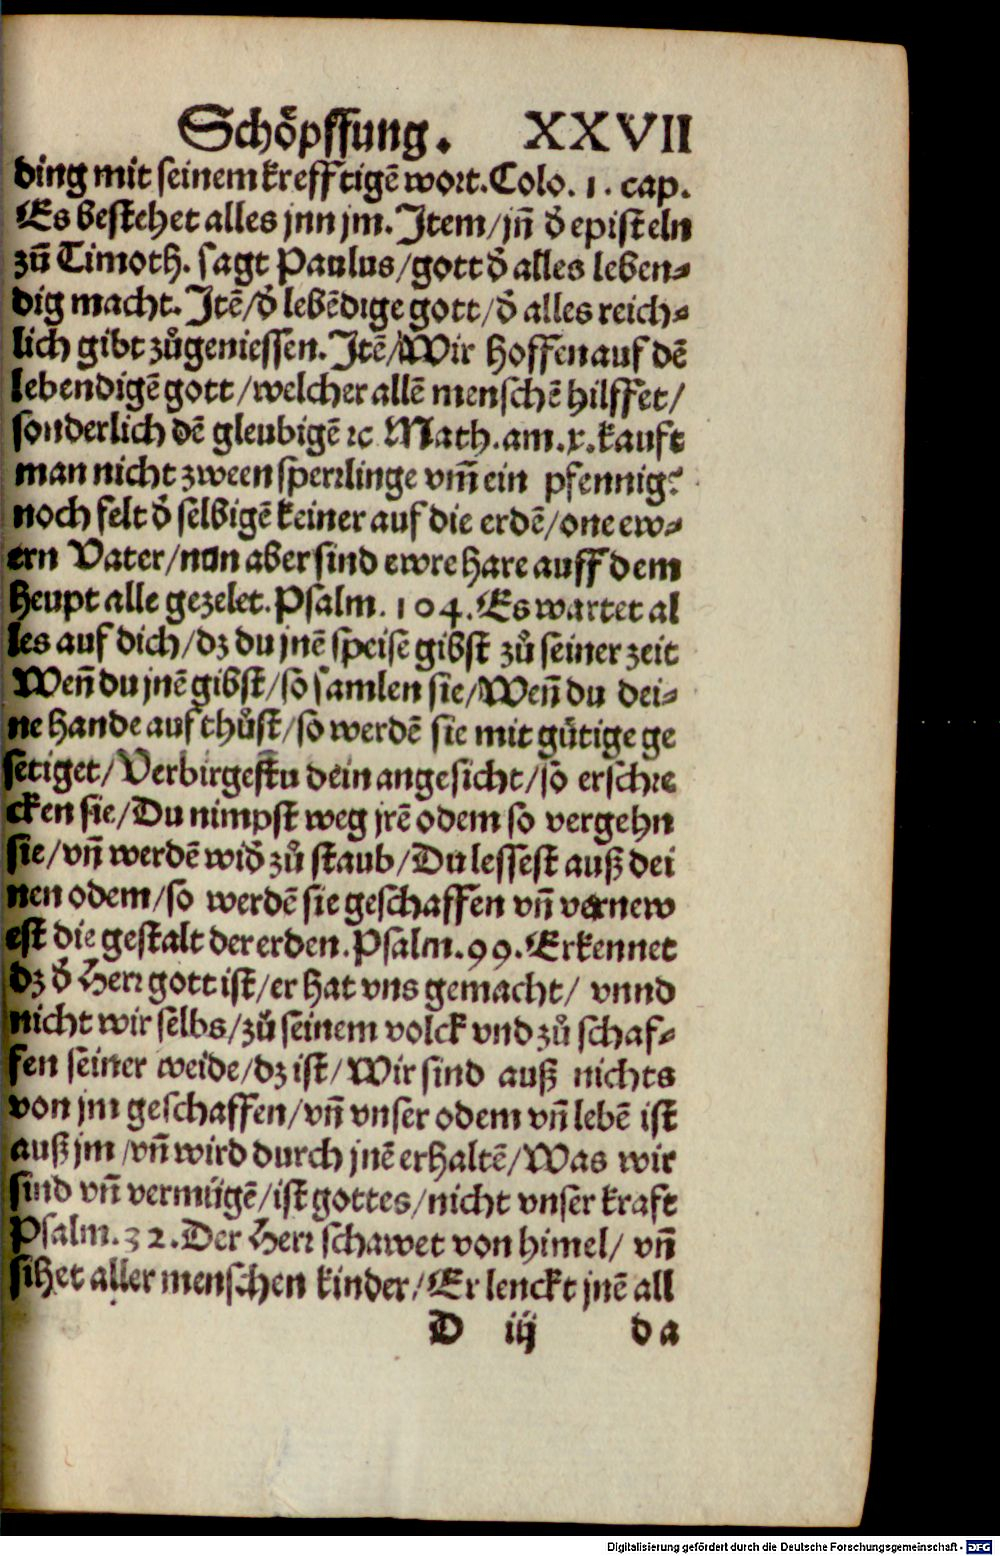 Schoͤpffung. XXVII
ding mit seinem krefftigẽ wort. Colo. 1. cap.
Es bestehet alles jnn jm. Item/ jñ d̾ episteln
zũ Timoth. sagt Paulus/ gott d̾ alles leben⸗
dig macht. Itẽ/ d̾ lebẽdige gott/ d̾ alles reich⸗
lich gibt zůgeniessen. Itẽ/ Wir hoffen auf dẽ
lebendigẽ gott/ welcher allẽ menschẽ hilffet/
sonderlich dẽ gleubigẽ ꝛc Math. am. x. kauft
man nicht zween sperrlinge vm̃ ein pfennig?
noch felt d̾ selbigẽ keiner auf die erdẽ/ one ew⸗
ern Vater/ nun aber sind ewre hare auff dem
heupt alle gezelet. Psalm. 104. Es wartet al
les auf dich/ dz du jnẽ speise gibst zů seiner zeit
Weñ du jnẽ gibst/ so samlen sie/ Weñ du dei⸗
ne hande auf thůst/ so werdẽ sie mit gůtige ge
setiget/ Verbirgestu dein angesicht/ so erschre
cken sie/ Du nimpst weg jrẽ odem so vergehn
sie/ vñ werdẽ wid̾ zů staub/ Du lessest auß dei
nen odem/ so werdẽ sie geschaffen vñ vernew
est die gestalt der erden. Psalm. 99. Erkennet
dz d̾ Herr gott ist/ er hat vns gemacht/ vnnd
nicht wir selbs/ zů seinem volck vnd zů schaf⸗
fen seiner weide/ dz ist/ Wir sind auß nichts
von jm geschaffen/ vñ vnser odem vñ lebẽ ist
auß jm/ vñ wird durch jnẽ erhaltẽ/ Was wir
sind vñ vermügẽ/ ist gottes/ nicht vnser kraft
Psalm. 32. Der Herr schawet von himel/ vñ
sihet aller menschen kinder/ Er lenckt jnẽ all
D iij da
Digitalisierung gefördert durch die Deutsche Forschungsgemeinschaft - DFG